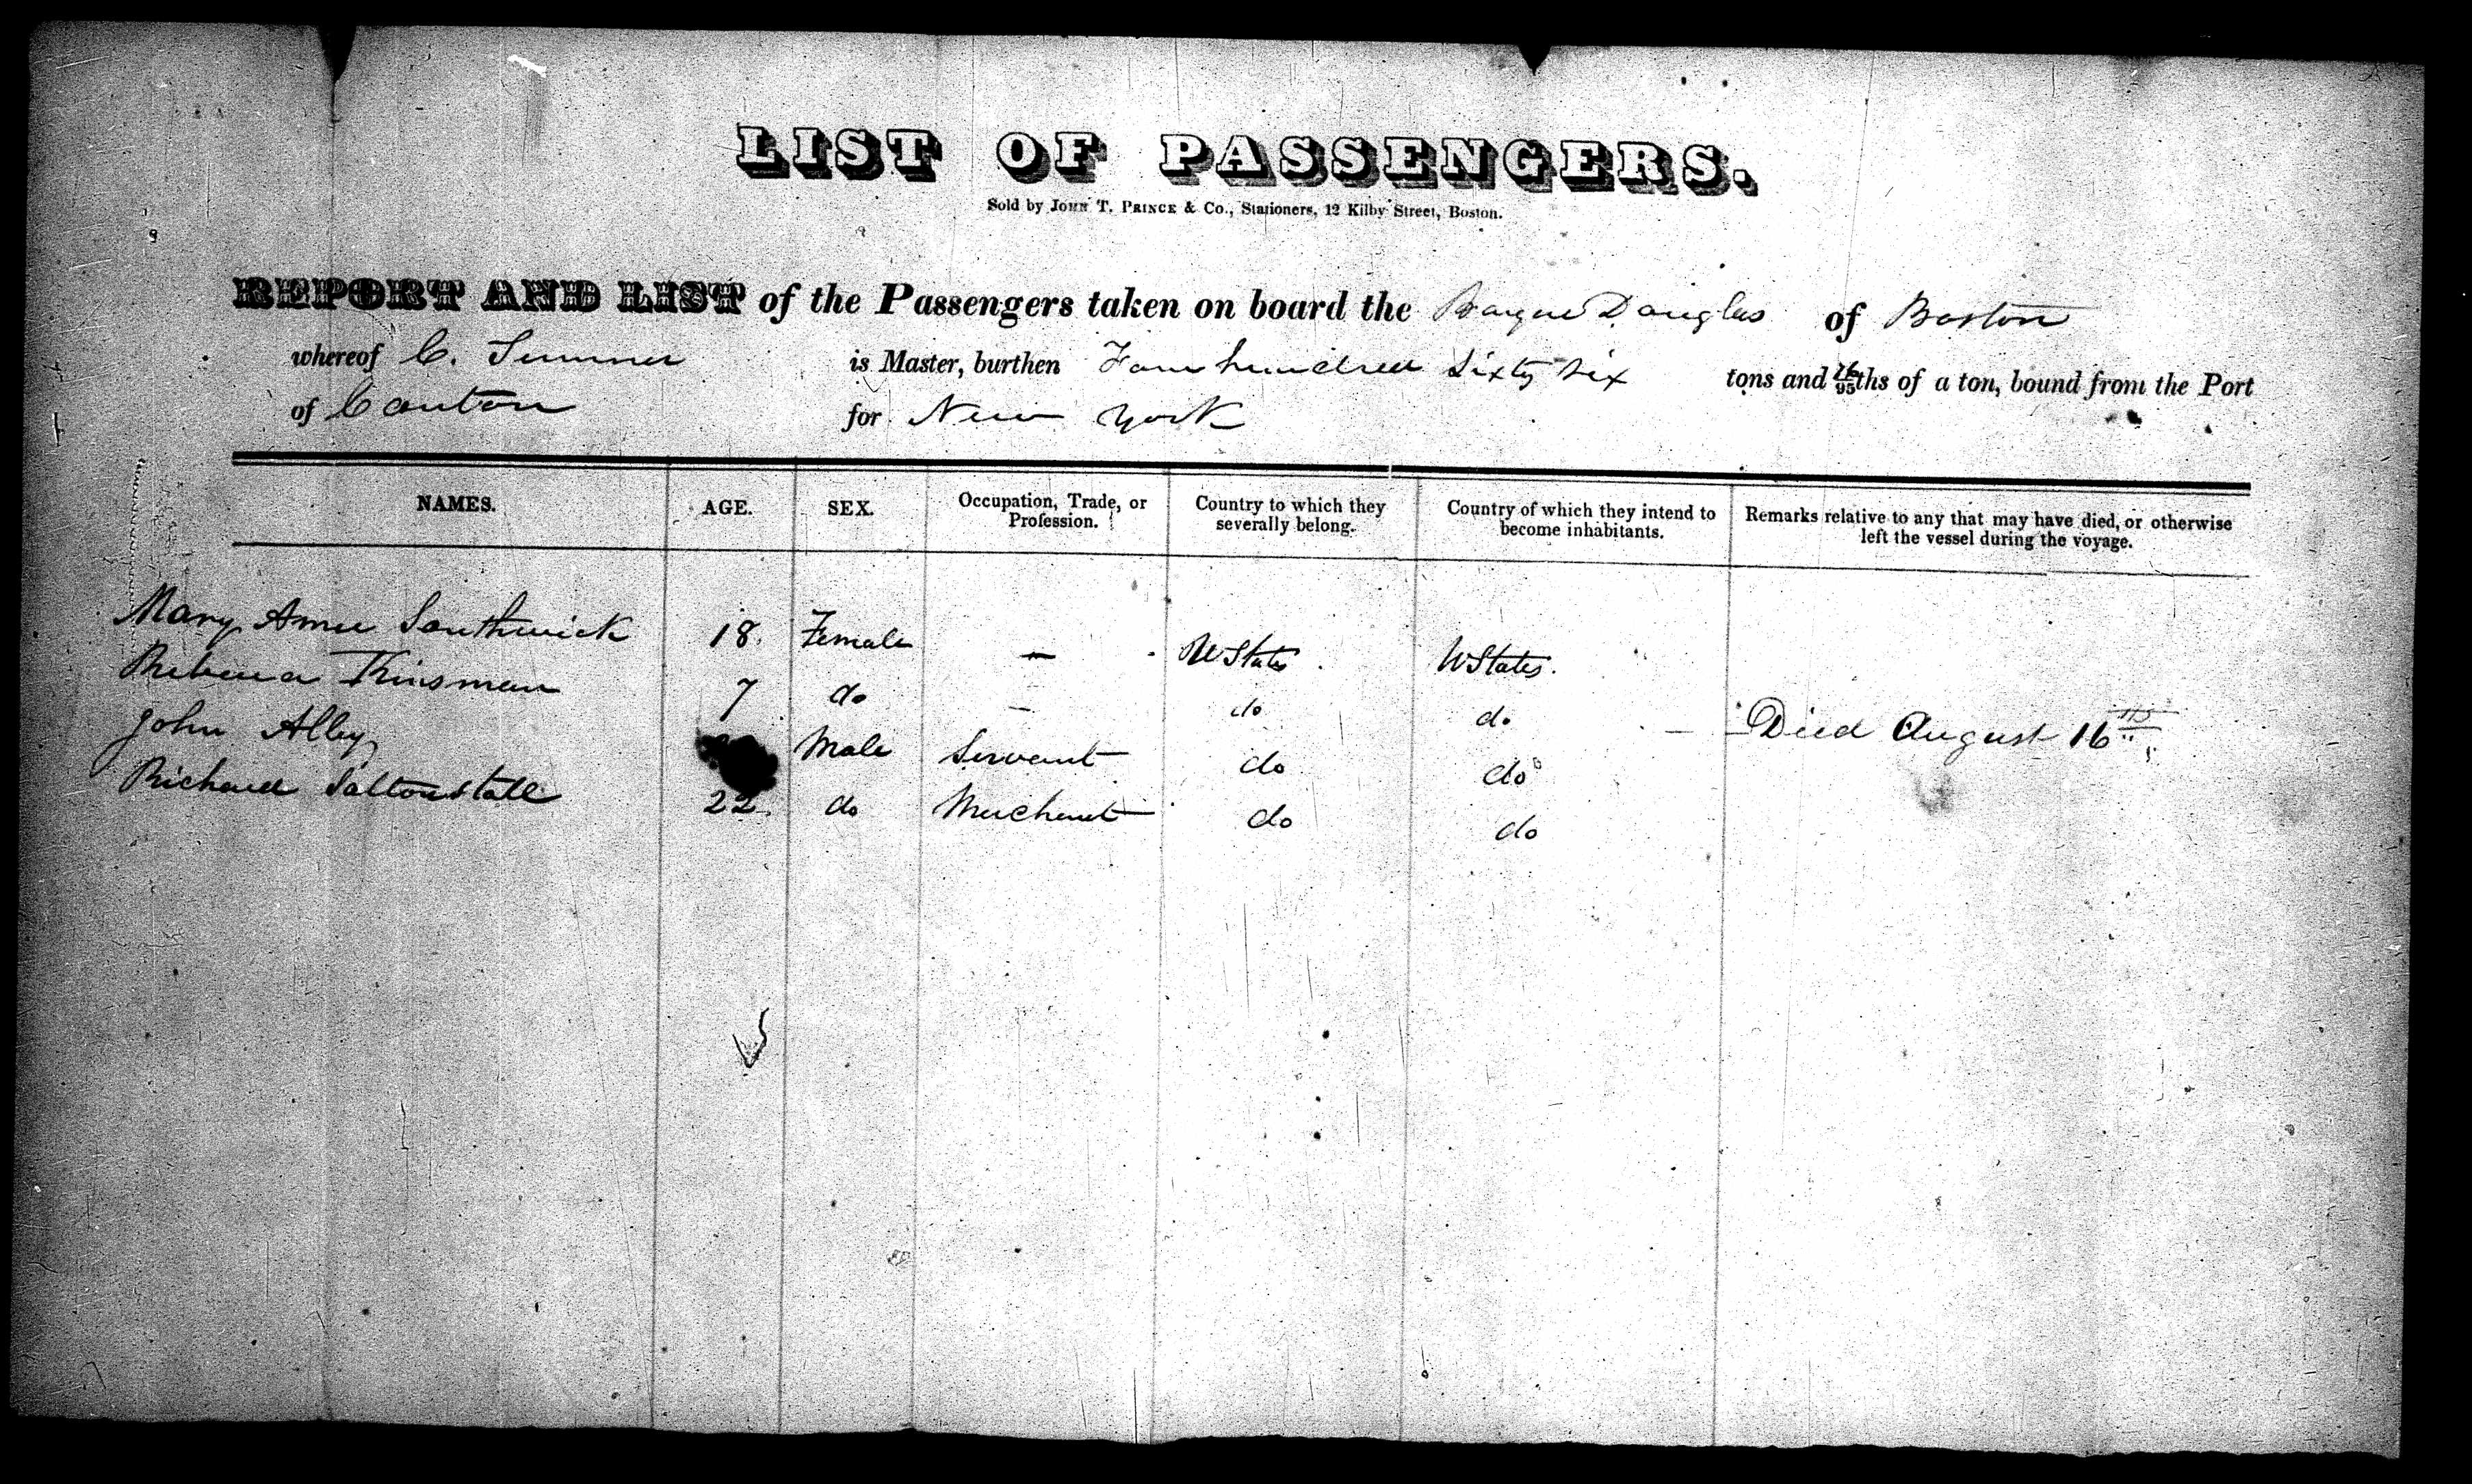 LIST OF PASSENGERS.
Sold by JOHN T. PRINCE & Co., Stationers, 12 Kilby Street, Boston.
REPORT AND LIST of the Passengers taken on board the Barque Douglas of Boston
whereof C. Sumner is Master, burthen Four hundred Sixty Six tons and 16/95ths of a ton, bound from the Port
of Canton for New York
NAMES. AGE. SEX. Occupation, Trade, or Profession. Country to which they severally belong. Country of which they intend to become inhabitants. Remarks relative to any that may have died, or otherwise left the vessel during the voyage.
Mary Anne Southwick 18 Female — U States U States.
Rebecca Kinsman 7 do — do do — Died August 16th
John Alley Male Servant do do
Richard Saltonstall 22. do Merchant do do